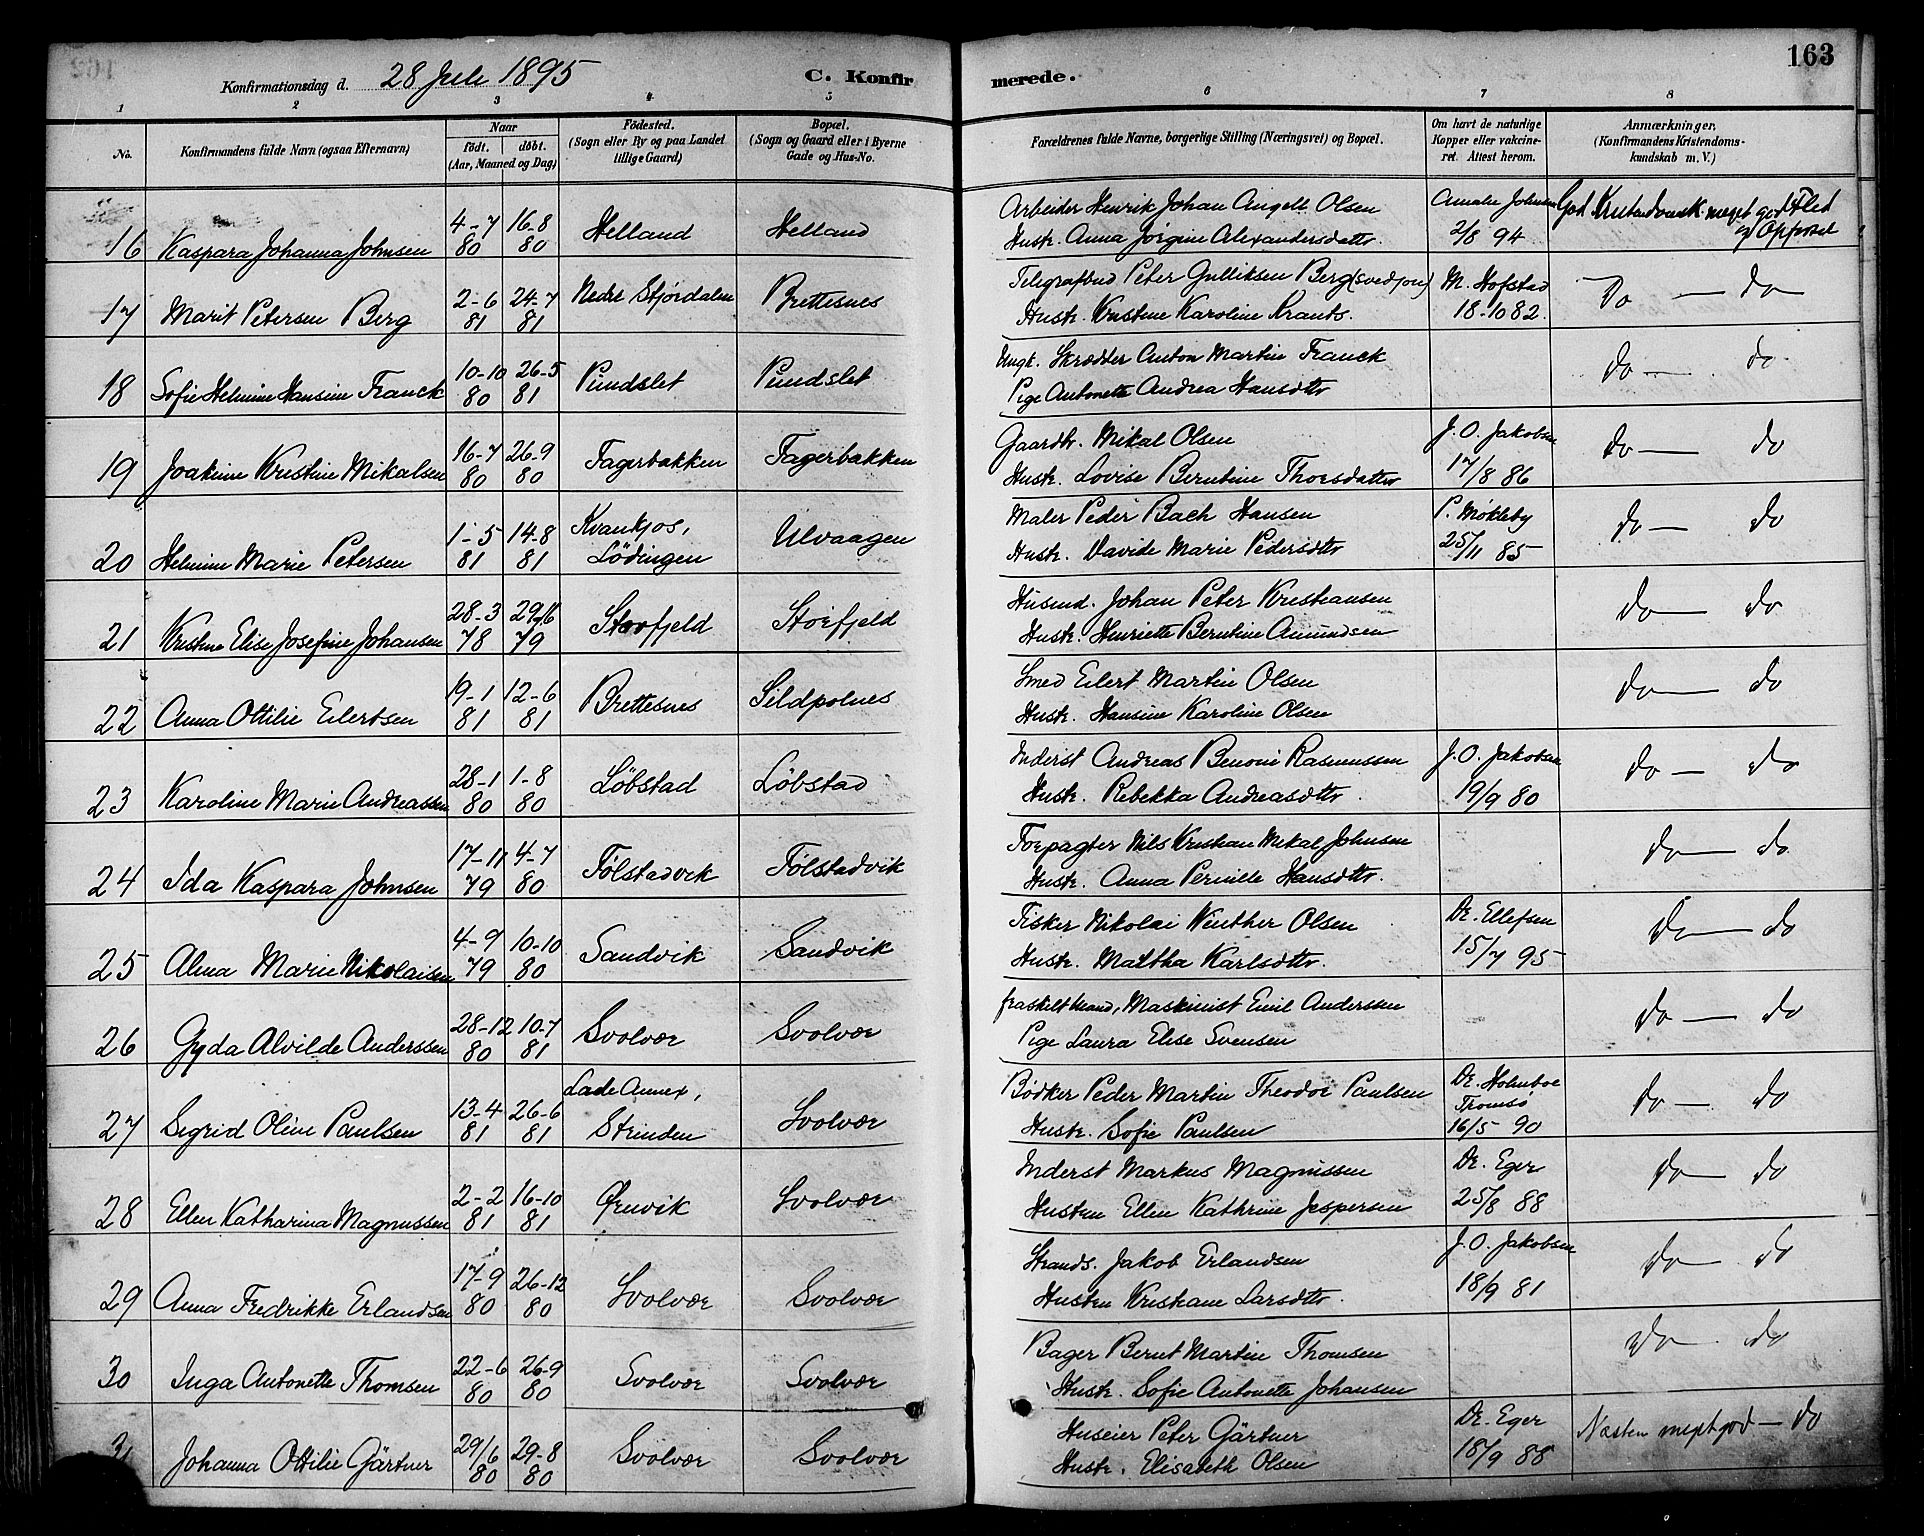 163
Konfirmationsdag d. 28 Juli 1895 C. Konfirmerede.
1 2 3 4 5 6 7 8
No. Konfirmandens fulde Navn (ogsaa Efternavn) Naar födt. döbt. (Aar, Maaned og Dag) Födested. (Sogn eller By og paa Landet tillige Gaard) Bopæl. (Sogn og Gaard eller i Byerne Gade og Hus-No. Forældrenes fulde Navne, borgerlige Stilling (Næringsvei) og Bopæl. Om havt de naturlige Kopper eller vaccineret. Attest herom. Anmærkninger. (Konfirmandens Kristendomskundskab m. V.)
16 Kaspara Johanna Johnsen 4-7 80 16-8 80 Helland Helland Arbeider Henrik Johan Angell Olsen
Hustr. Anna Jörgine Alexandersdatter. Amalie Johnsen 2/8 94 God Kristendomsk. meget god Flid og Opførsel
17 Marit Petersen Berg 2-6 81 24-7 81 Nedre Stjørdalen Brettesnes Telegrafbud Peter Gulliksen Berg
Hustr. Kristine Karoline Krants. M. Hofstad 18-10 82. Do — do
18 Sofie Helmine Hansine Franck 10-10 80 26-5 81 Pundslet Pundslet Ungk. Skrædder Anton Martin Franck
Pige Antonette Andrea Hansdtr do — do
19 Joakime Kristine Mikalsen 16-7 80 26-9 80 Fagerbakken Fagerbakken Gaardbr. Mikal Olsen
Hustr. Lovise Berntine Thorsdatter J. O. Jakobsen 17/8 86 do — do
20 Helmine Marie Petersen 1-5 81 14-8 81 Kvankjos, Lödingen Ulvaagen Maler Peder Bach Hansen
Hustr. Davide Marie Pedersdtr P. Møkleby 25/11 85 do — do
21 Kristine Elise Josefine Johansen 28-3 78 29/6 79 Storfjeld Storfjeld Husmd. Johan Peter Kristiansen
Hustr. Henriette Berntine Amundsen do — do
22 Anna Ottilie Eilertsen 19-1 81 12-6 81 Brettesnes Sildpolnes Smed Eilert Martin Olsen
Hustr. Hansine Karoline Olsen do — do
23 Karoline Marie Andreassen 28-1 80 1-8 80 Løbstad Løbstad Inderst Andreas Benoni Rasmussen
Hustr. Rebekka Andreasdtr. J. O. Jakobsen 19/9 80 do — do
24 Ida Kaspara Johnsen 17-11 79 4-7 80 Følstadvik Følstadvik Forpagter Nils Kristian Mikal Johnsen
Hustr. Anna Pernille Hansdtr. do — do
25 Alma Marie Nikolaisen 4-9 79 10-10 80 Sandvik Sandvik Fisker Nikolai Winther Olsen
Hustr. Maltha Karlsdtr. Dr. Ellefsen 15/7 95 do — do
26 Gyda Alvilde Anderssen 28-12 80 10-7 81 Svolvær Svolvær fraskilt Mand, Maskinist Emil Anderssen
Pige Laura Elise Svensen do — do
27 Sigrid Oline Paulsen 13-4 81 26-6 81 Lade Annex, Strinden Svolvær Bödker Peder Martin Theodor Paulsen
Hustr. Sofie Paulsen Dr. Holmboe Tromsö 16/5 90 do — do
28 Ellen Katharina Magnussen 2-2 81 16-10 81 Ørnvik Svolvær Inderst Markus Magnussen
Hustru Ellen Kathrine Jespersen Dr. Eger 25/8 88 do — do
29 Anna Fredrikke Erlandsen 17-9 80 26-12 80 Svolvær Svolvær Strands. Jakob Erlandsen
Hustru Kristiane Larsdtr. J. O. Jakobsen 18/9 81 do — do
30 Inga Antonette Thomsen 22-6 80 26-9 80 Svolvær Svolvær Bager Bernt Martin Thomsen
Hustr. Sofie Antonette Johansen do — do
31 Johanna Ottilie Gärtner 29/6 80 29-8 80 Svolvær Svolvær Huseier Peter Gärtner
Hustr. Elisabeth Olsen Dr. Eger 18/9 88 Næsten meget god — do